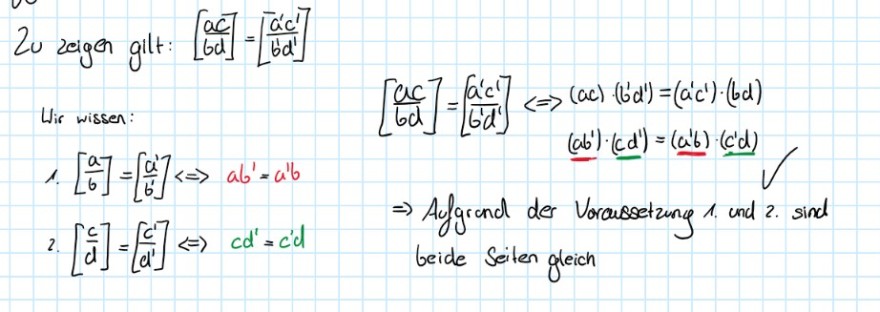 Zu zeigen gilt: [ac/bd] = [a'c'/b'd']
Wir wissen:
1. [a/b] = [a'/b'] <=> ab' = a'b
2. [c/d] = [c'/d'] <=> cd' = c'd
[ac/bd] = [a'c'/b'd'] <=> (ac)·(b'd') = (a'c')·(bd)
(ab')·(cd') = (a'b)·(c'd) ✓
=> Aufgrund der Voraussetzung 1. und 2. sind
beide Seiten gleich